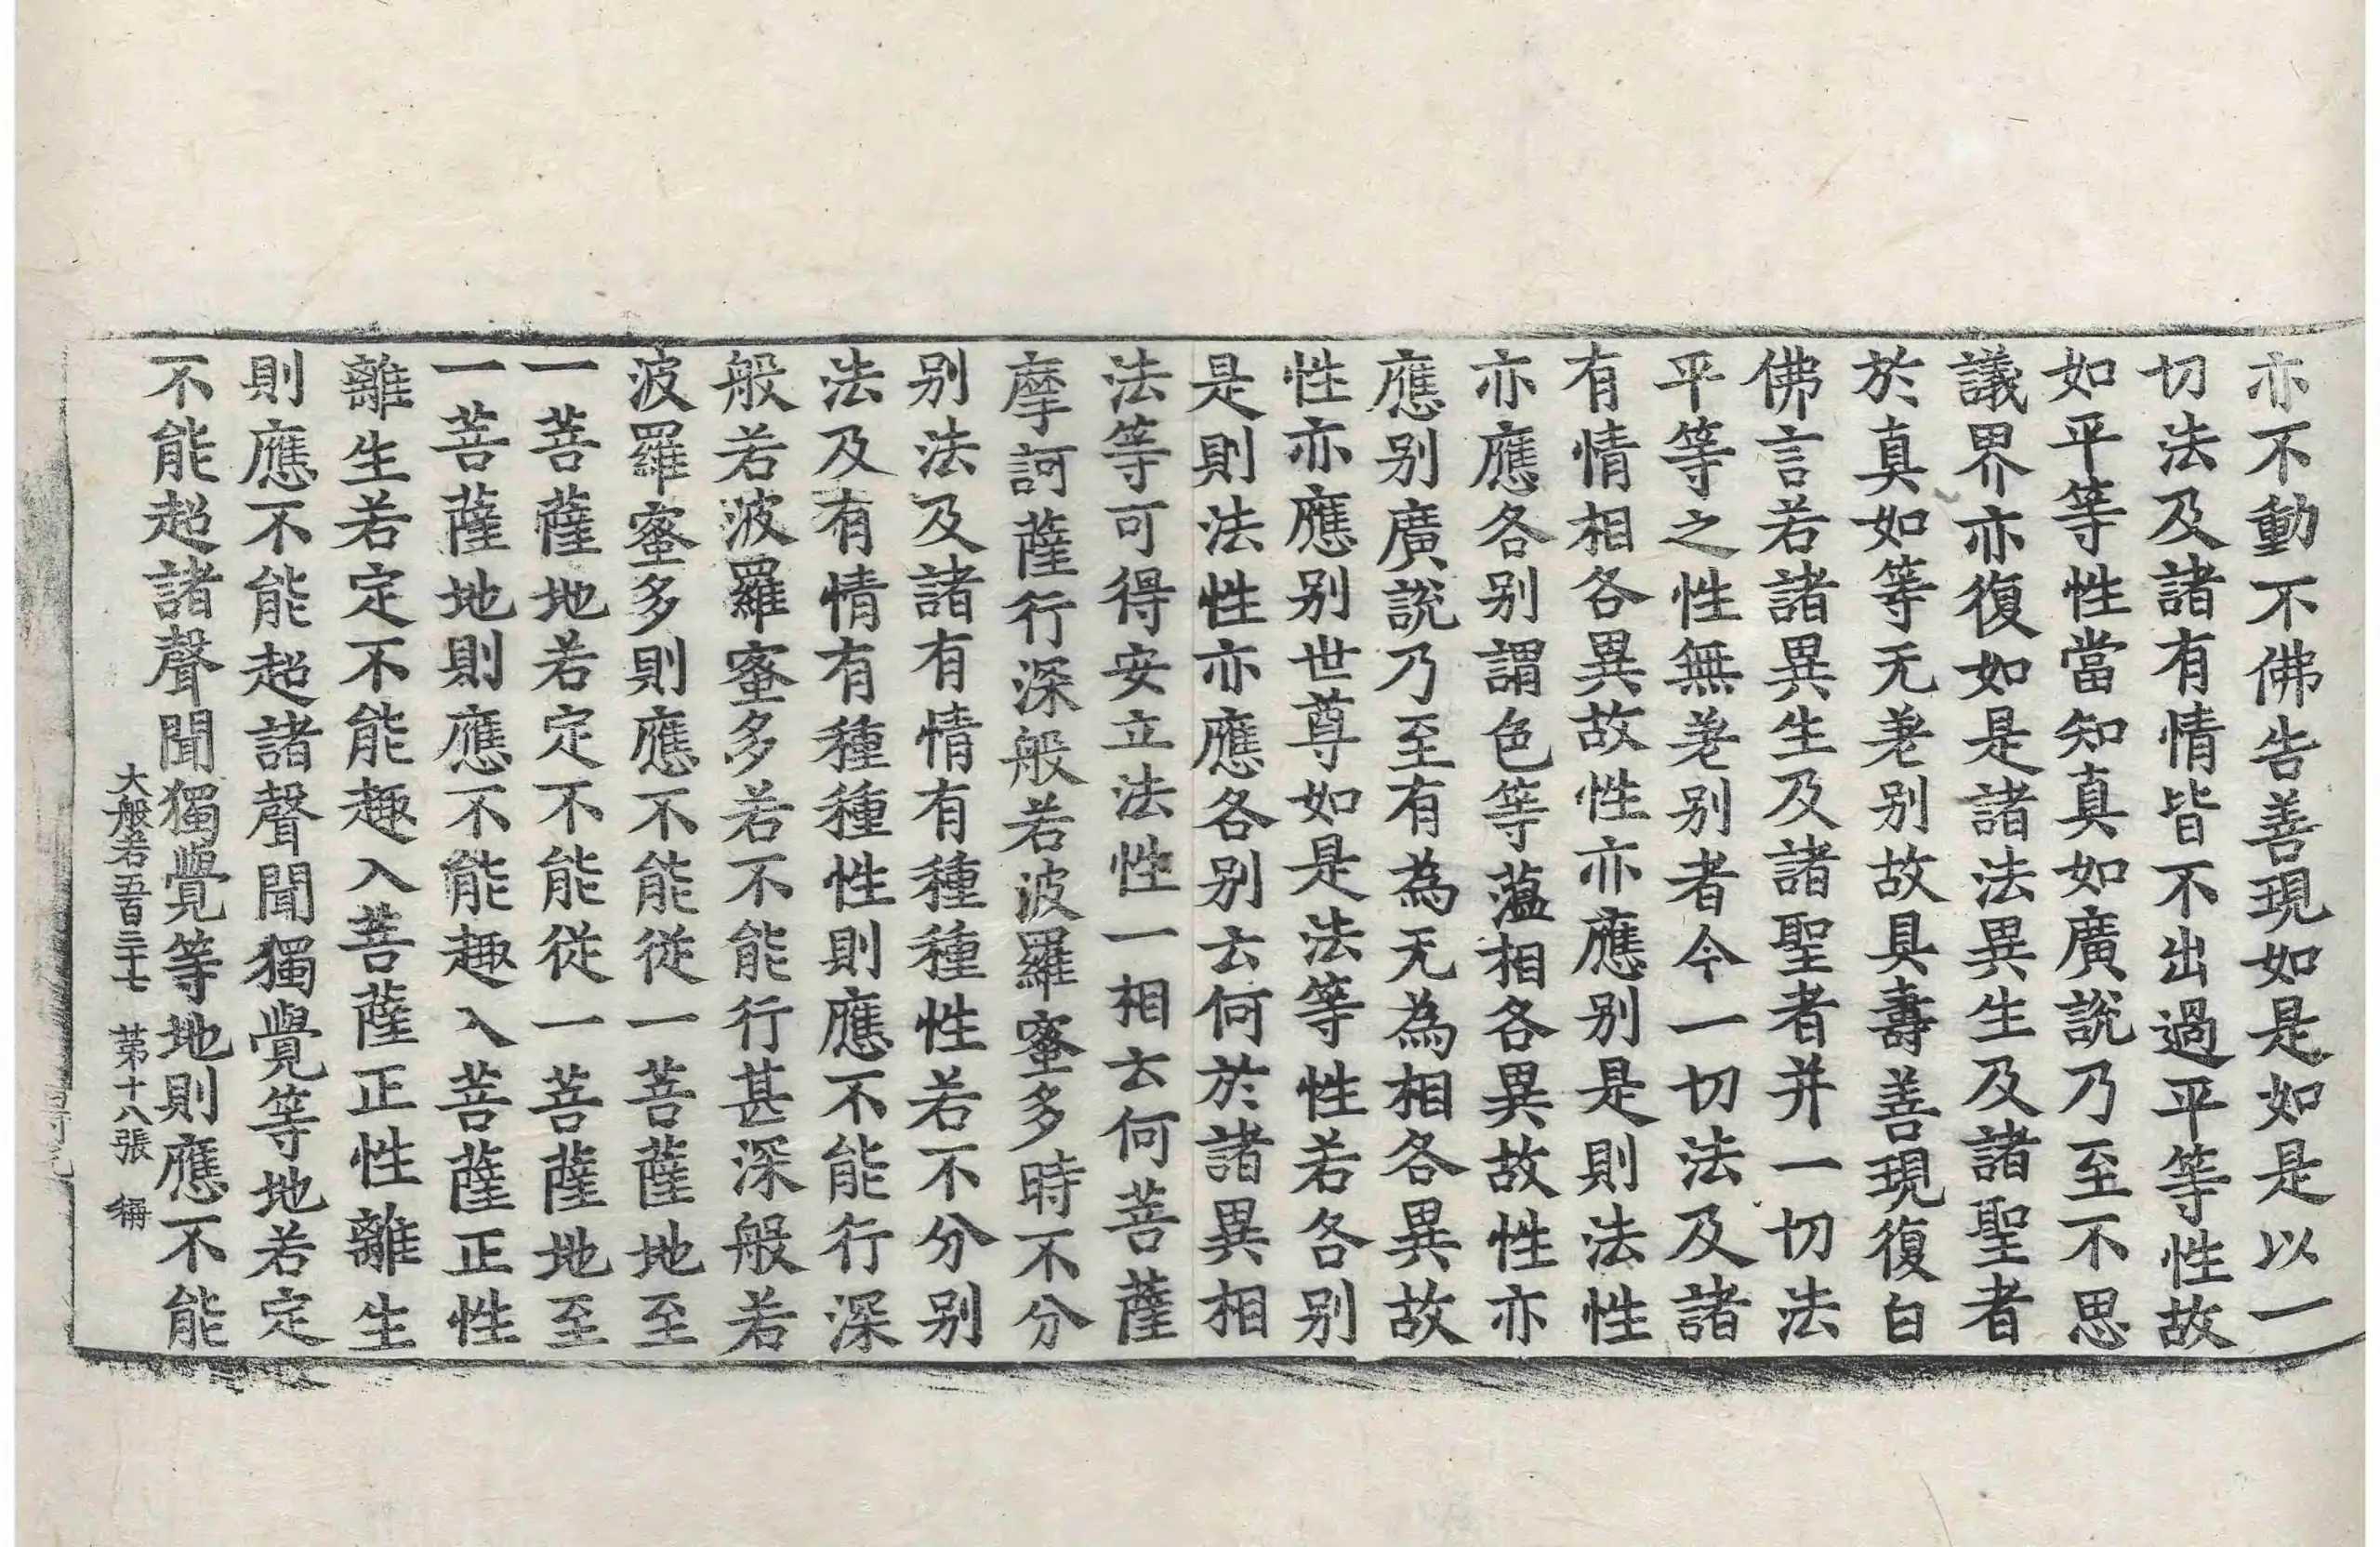 亦不動不佛告善現如是如是以一
切法及諸有情皆不出過平等性故
如平等性當知真如廣說乃至不思
議界亦復如是諸法異生及諸聖者
於真如等无差别故具壽善現復白
佛言若諸異生及諸聖者并一切法
平等之性無差别者今一切法及諸
有情相各異故性亦應别是則法性
亦應各别謂色等蘊相各異故性亦
應别廣說乃至有為无為相各異故
性亦應别世尊如是法等性若各别
是則法性亦應各别云何於諸異相
法等可得安立法性一相云何菩薩
摩訶薩行深般若波羅蜜多時不分
别法及諸有情有種種性若不分别
法及有情有種種性則應不能行深
般若波羅蜜多若不能行甚深般若
波羅蜜多則應不能從一菩薩地至
一菩薩地若定不能從一菩薩地至
一菩薩地則應不能趣入菩薩正性
離生若定不能趣入菩薩正性離生
則應不能超諸聲聞獨覺等地若定
不能超諸聲聞獨覺等地則應不能
大般若五百三十七 第十八張 稱